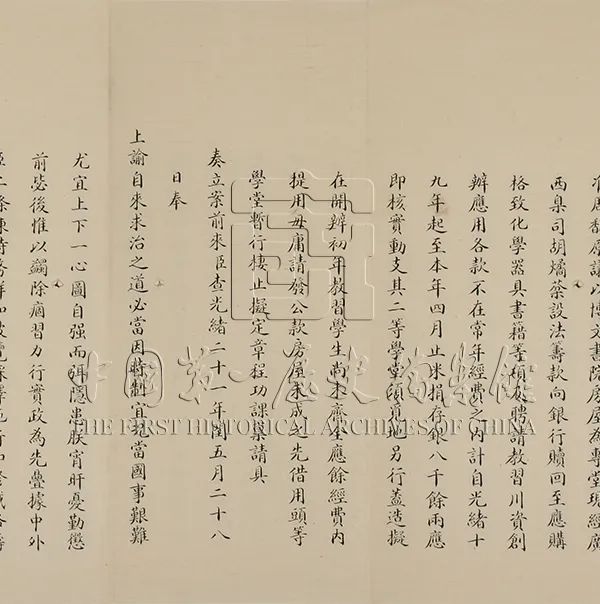 請以博文書院房屋為專堂現經廣
西臬司胡燏棻設法籌款向銀行贖回至應購
格致化學器具書籍等項及聘請教習川資創
辦應用各款不在常年經費之內計自光緒十
九年起至本年四月止米捐存銀八千餘兩應
即核實動支其二等學堂須覓地另行蓋造擬
在開辦初年教習學生尚未齊全應餘經費內
提用毋庸請發公款房屋未成之先借用頭等
學堂暫行棲止擬定章程功課稟請具
奏立案前來臣查光緒二十一年閏五月二十八
日奉
上諭自來求治之道必當因時制宜況當國事艱難
尤宜上下一心圖自強而弭隱患朕宵旰憂勤懲
前毖後惟以蠲除痼習力行實政為先疊據中外
中国第一历史档案馆
THE FIRST HISTORICAL ARCHIVES OF CHINA